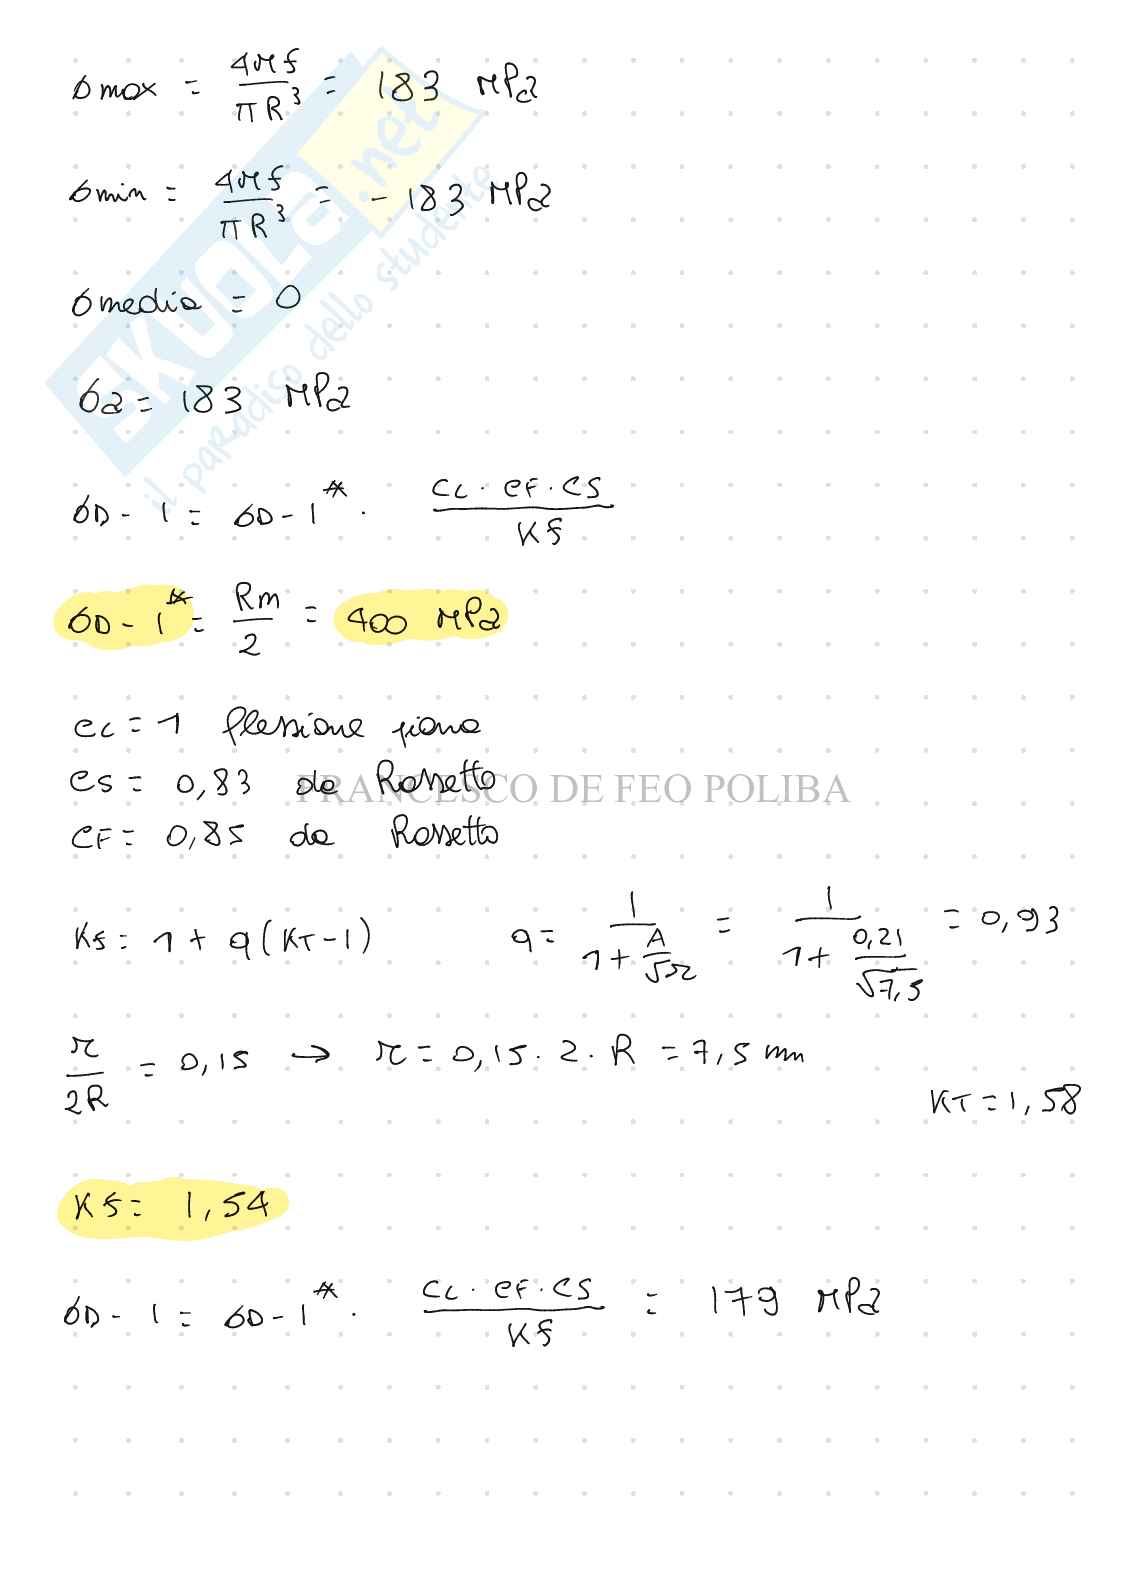 σmax = 4Mf / πR³ = 183 MPa
σmin = 4Mf / πR³ = - 183 MPa
σmedia = 0
σa = 183 MPa
σD-1 = σD-1* · CL · CF · CS / Kf
σD-1* = Rm / 2 = 400 MPa
CL = 1 flessione piana
CS = 0,83 da Rossetto
CF = 0,85 da Rossetto
Kf = 1 + q (KT - 1) q = 1 / 1 + A/√r = 1 / 1 + 0,21/√7,5 = 0,93
r / 2R = 0,15 → r = 0,15 · 2 · R = 7,5 mm
KT = 1,58
Kf = 1,54
σD-1 = σD-1* · CL · CF · CS / Kf = 179 MPa
SKUOLA.net
il paradiso dello studente
FRANCESCO DE FEO POLIBA